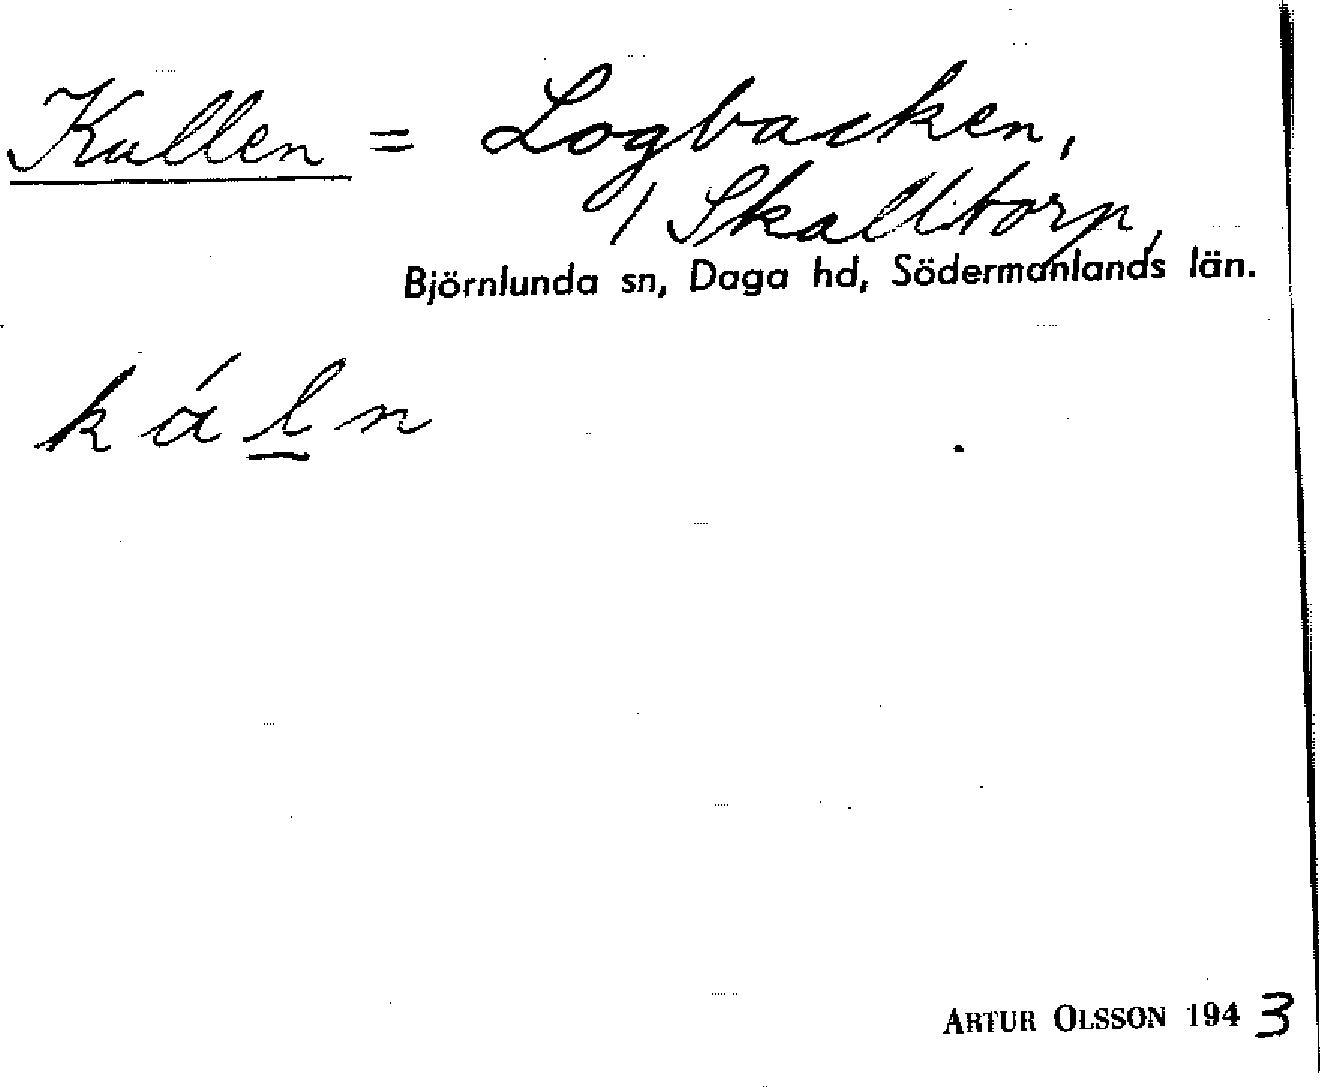 Kullen = Logbacken,
/ Skälltorp,
Björnlunda sn, Daga hd, Södermanlands län.
k á l n
ARTUR OLSSON 1943